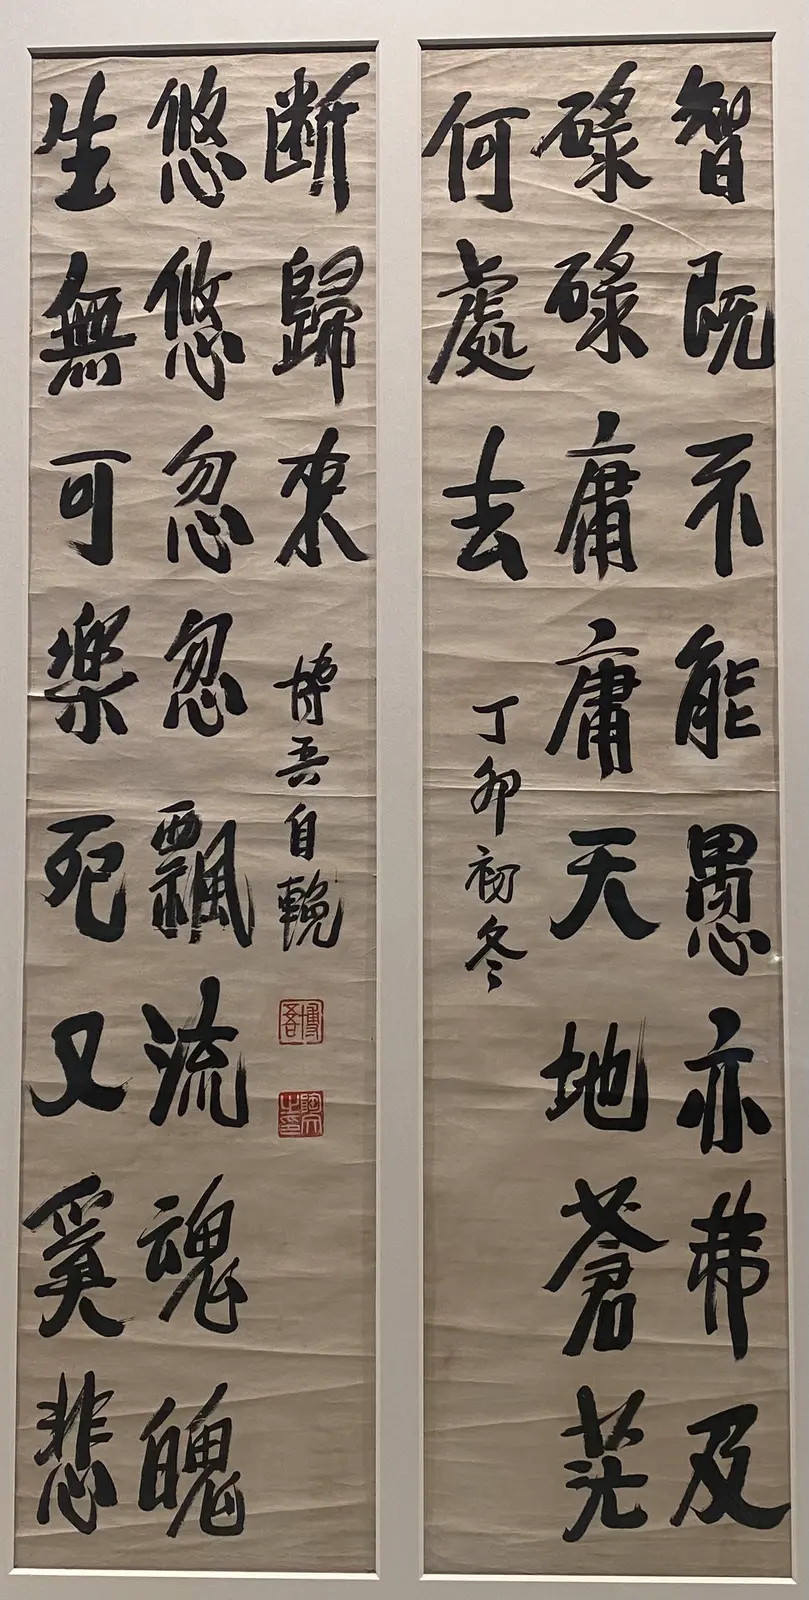 智既不能愚亦弗及
碌碌庸庸天地蒼茫
何處去
丁卯初冬
生無可樂死又奚悲
悠悠忽忽飄流魂魄
断歸來
博吾自輓
博吾